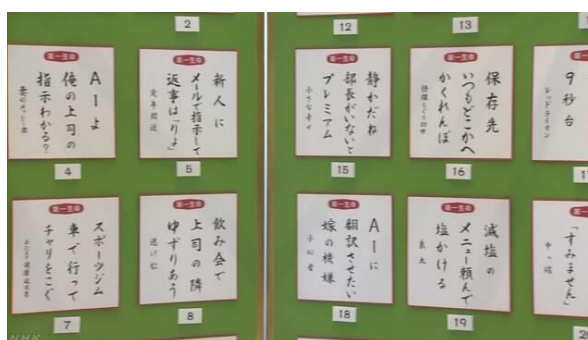 2
12
13
第一生命
AIよ
俺の上司の
指示わかる?
4
第一生命
新人に
メールで指示して
返事は「りよ」
定年間近
5
第一生命
静かだね
部長がいないと
プレミアム
小さな幸せ
15
第一生命
保存先
いつもどこかへ
かくれんぼ
16
第一生命
9秒台
レッドライオン
第一生命
スポーツジム
車で行って
チャリをこぐ
7
第一生命
飲み会で
上司の隣
ゆずりあう
8
第一生命
AIに
翻訳させたい
嫁の機嫌
18
第一生命
減塩の
メニュー頼んで
塩かける
良太
19
第一生命
「すみません」
20
NHK